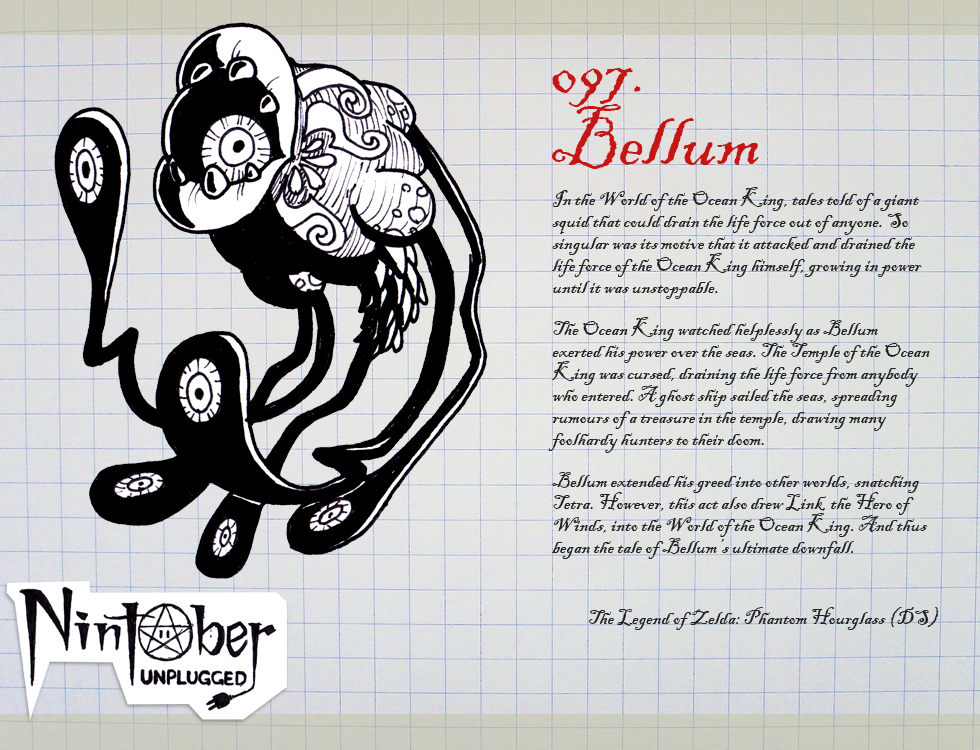 097.
Bellum
In the World of the Ocean King, tales told of a giant
squid that could drain the life force out of anyone. So
singular was its motive that it attacked and drained the
life force of the Ocean King himself, growing in power
until it was unstoppable.
The Ocean King watched helplessly as Bellum
exerted his power over the seas. The Temple of the Ocean
King was cursed, draining the life force from anybody
who entered. A ghost ship sailed the seas, spreading
rumours of a treasure in the temple, drawing many
foolhardy hunters to their doom.
Bellum extended his greed into other worlds, snatching
Tetra. However, this act also drew Link, the Hero of
Winds, into the World of the Ocean King. And thus
began the tale of Bellum's ultimate downfall.
The Legend of Zelda: Phantom Hourglass (DS)
Nintober
UNPLUGGED